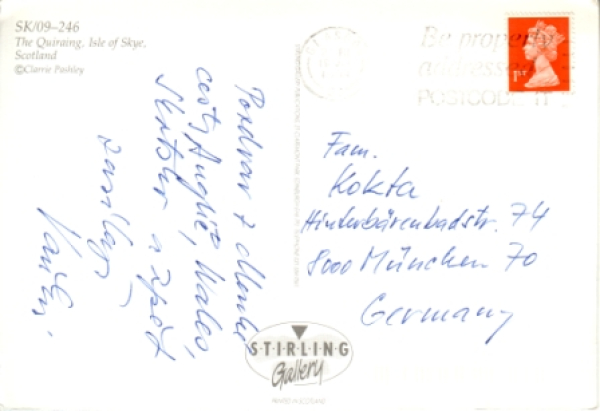 SK/09–246
The Quiraing, Isle of Skye,
Scotland
©Clarrie Pashley
Pozdrav z dlouhé
cesty Anglií, Wales,
a zpět
zasílají
Be properly
addressed
POSTCODE IT
1ST
Fam.
Kokta
Hinterbärenbadstr. 74
8000 München 70
Germany
STIRLING
Gallery
PRINTED IN SCOTLAND